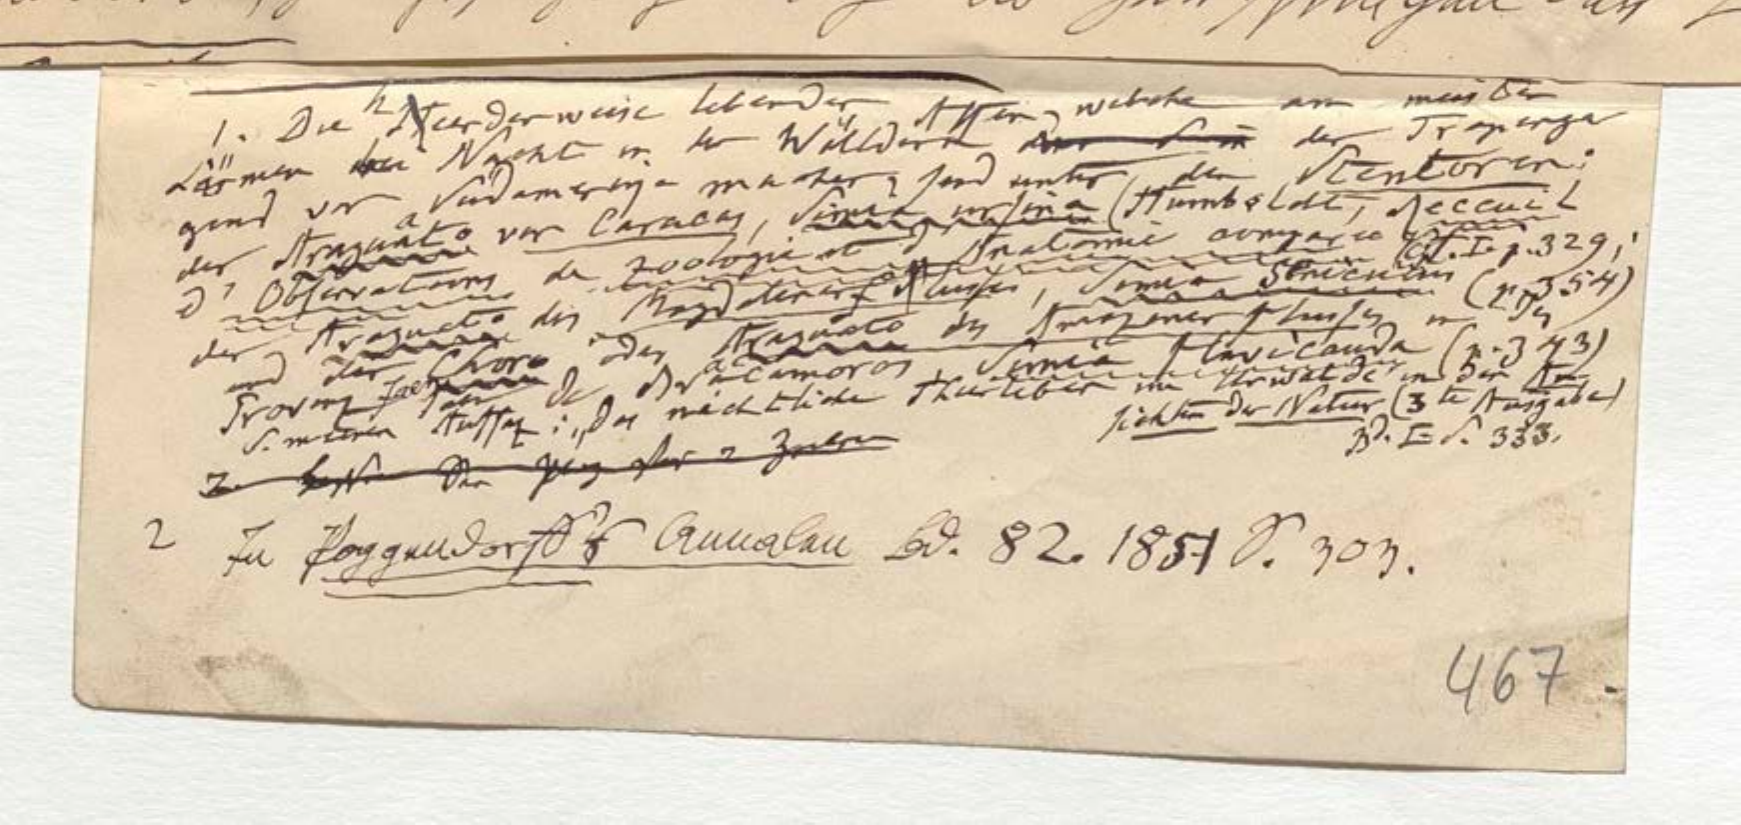 1. Die heerdenweise lebenden Affen, welche am meisten
Lärmen bei Nacht in den Wäldern der Tropenge
gend von Südamerika machen, sind unter den Stentoren:
der Araguato von Caracas, Simia ursina (Humboldt, Recueil
d'Observations de Zoologie et d'Anatomie comparée T. I. p. 329;
der Araguato des Magdalenenflusses, Simia Seniculus (p. 354)
und der Choro oder Araguato des Amazonenflusses in der
Provinz Jaen de Bracamoros Simia flavicauda (p. 343)
S. meinen Aufsaz: „Das nächtliche Thierleben im Urwalde" in den An
sichten der Natur (3te Ausgabe)
Bd. I S. 333.
2 In Poggendorff's Annalen Bd. 82. 1851 S. 303.
467